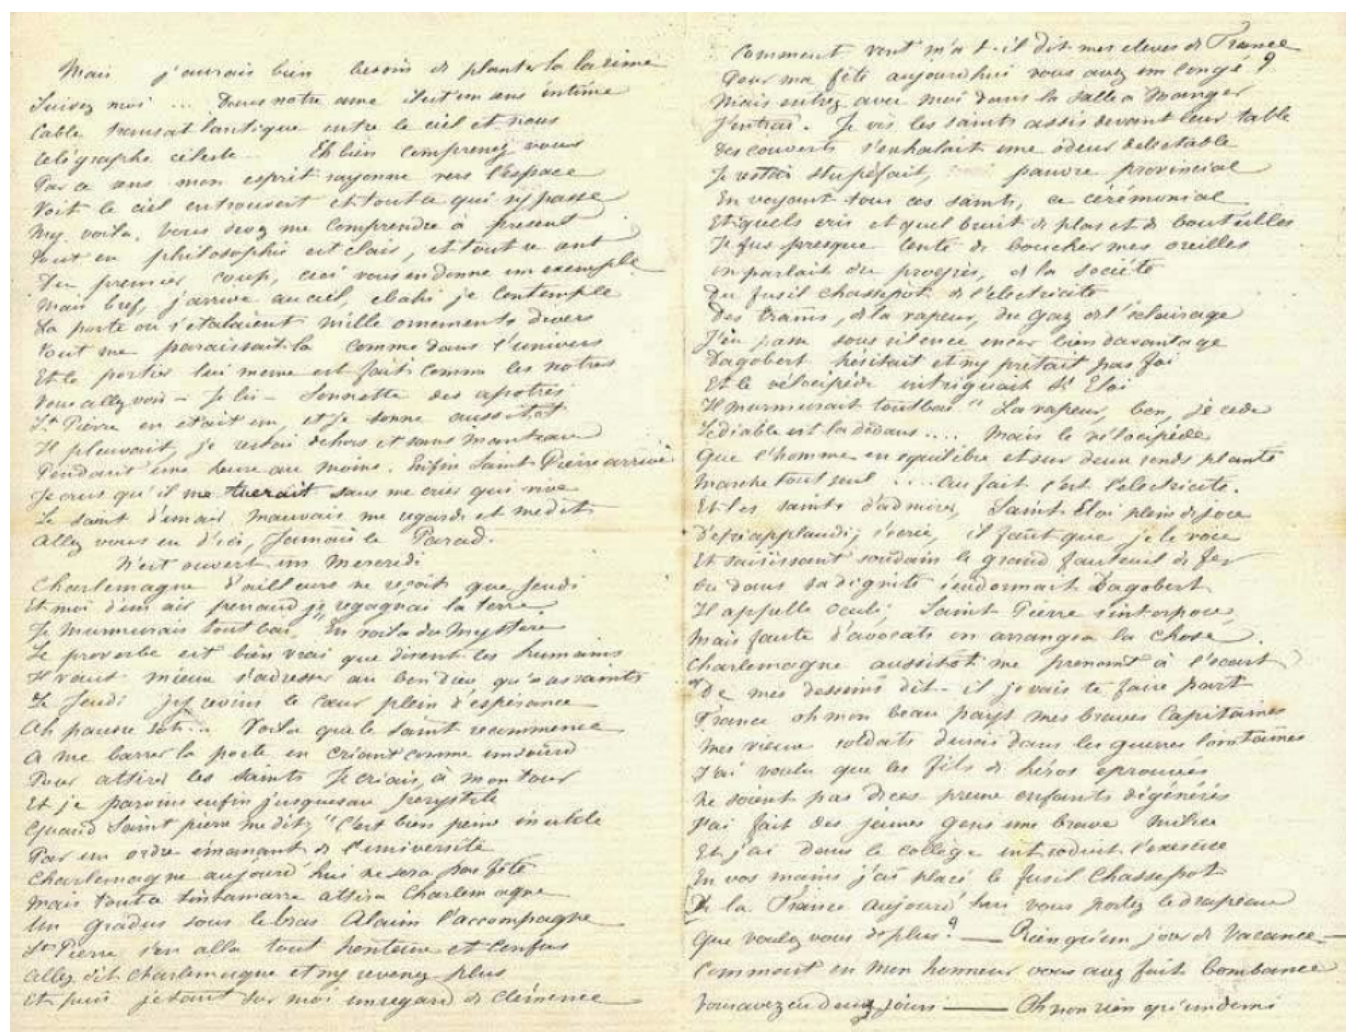 Mais j'aurais bien besoin de planter la la rime
Suivez moi ... Dans notre ame il est un sens intime
Cable transatlantique entre le ciel et nous
telégraphe céleste .. Eh bien comprenez vous
Par ce sens mon esprit rayonne vers l'espace
Voit le ciel entrouvert et tout ce qui s'y passe
M'y voila, vous devez me comprendre à present
tout en philosophie est clair, et tout se
Du premier coup, ceci vous en donne un exemple
Mais bref, j'arrive au ciel, ebahi je contemple
La porte ou s'etalaient mille ornements divers
tout me paraissait la comme dans l'univers
Et le portier lui meme est fait comme les notres
Vous allez voir - Je lis - Sonnette des apotres
St Pierre en etait un, et je sonne aussitot
Il pleuvait, je restai dehors et sans manteau
Pendant une heure au moins. Enfin Saint Pierre arrive
Je crus qu'il me tuerait sans me crier qui vive
Le saint d'un air mauvais me regarde et me dit
Allez vous en d'ici, Jamais le Parad.
N'est ouvert un Mercredi
Charlemagne d'ailleurs ne reçoit que Jeudi
Et moi d'un air penaud je regagnai la terre
Je murmurais tout bas, "En voila du mystère
Le proverbe est bien vrai que disent les humains
Il vaut mieux s'adresser au bon dieu qu'a ses saints
Le Jeudi j'y revins le cœur plein d'espérance
Ah pauvre sot... Voila que le saint recommence
A me barrer la porte en criant comme un sourd
Pour attirer les saints Je criais, à mon tour
Et je parvins enfin jusques au perystile
Quand Saint pierre me dit, "C'est bien peine inutile
Par un ordre émanant de l'université
Charlemagne aujourd'hui ne sera pas fêté
Mais tout ce tintamarre attira Charlemagne
Un gradus sous le bras Alcuin l'accompagne
St Pierre s'en alla tout honteux et confus
Allez dit Charlemagne et n'y revenez plus
Et puis jetant sur moi un regard de clémence
Comment vont m'a t-il dit mes eleves de France
Pour ma fête aujourd'hui vous avez eu congé ?
Mais entrez avec moi dans la salle a manger
J'entrai. Je vis les saints assis devant leur table
Des couverts s'exhalait une odeur delectable
Je restai stupéfait, pauvre provincial
En voyant tous ces saints, ce cérémonial
Et quels cris et quel bruit de plats et de bouteilles
Je fus presque tenté de boucher mes oreilles
On parlait du progrès, de la société
Du fusil Chassepot de l'electricité
Des trams, de la vapeur, du gaz et l'eclairage
J'en passe sous silence encor bien davantage
Dagobert hésitait et n'y prêtait pas foi
Et le vélocipède intriguait St Eloi
Il murmurait tout bas " La vapeur, bon, je cede
Le diable est la dedans .... Mais le vélocipède
Que l'homme en equilibre et sur deux ronds planté
Marche tout seul .... Au fait c'est l'electricité.
Et les saints d'admirer, Saint Eloi plein de joie
D'espoir applaudi, s'ecrie, il faut que je le voie
Et saisissant soudain le grand fauteuil de fer
Ou dans sa dignité s'endormait Dagobert
Il appelle Oculi, Saint Pierre s'interpose,
Mais faute d'avocats on arrangea la chose.
Charlemagne aussitot me prenant à l'ecart
De mes desseins dit-il je vais te faire part
France oh mon beau pays mes braves Capitaines
Mes vieux soldats durcis dans les guerres lointaines
J'ai voulu que les fils de héros eprouvés
Ne soient pas de ces preux enfants dégénérés
J'ai fait des jeunes gens une brave milice
Et j'ai dans le collège introduit l'exercice
En vos mains j'ai placé le fusil Chassepot
De la France aujourd'hui vous portez le drapeau
Que voulez vous de plus? — Rien qu'un jour de Vacance —
Comment en mon honneur vous avez fait bombance
Vous avez eu deux jours — Oh non rien qu'un demi